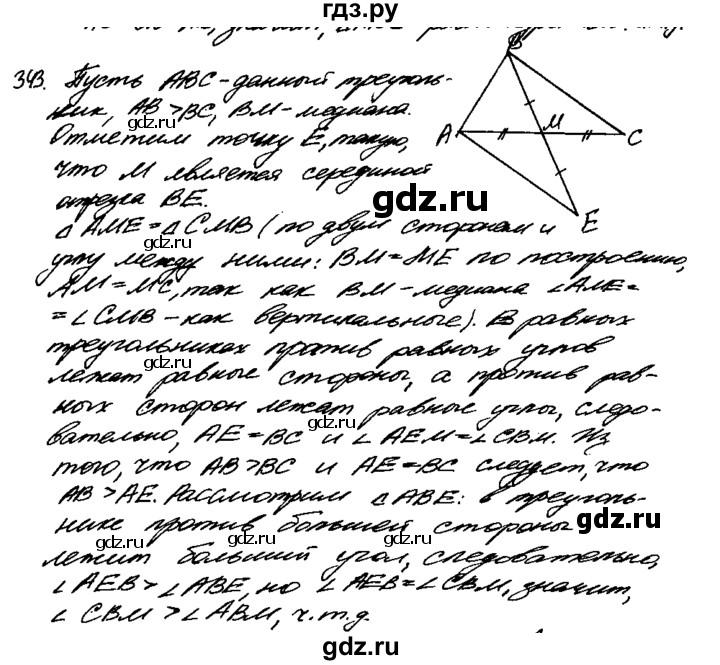 гдз.ру
343. Пусть ABC – данный треуголь-
ник, AB > BC, BM – медиана.
Отметим точку E, такую,
что M является серединой
отрезка BE.
B
A
M
C
E
gdz.ru
△ AME = △ CMB (по двум сторонам и
углу между ними: BM = ME по построению,
AM = MC, так как BM – медиана ∠AME =
= ∠CMB – как вертикальные). В равных
gdz.ru
треугольниках против равных углов
лежат равные стороны, а против рав-
gdz.ru
ных сторон лежат равные углы, следо-
gdz.ru
вательно, AE = BC и ∠AEM = ∠CBM. Из
того, что AB > BC и AE = BC следует, что
gdz.ru
AB > AE. Рассмотрим △ABE: в треуголь-
нике против большей стороны
gdz.ru
gdz.ru
лежит больший угол, следовательно,
gdz.ru
∠AEB > ∠ABE, но ∠AEB = ∠CBM, значит,
gdz.ru
∠CBM > ∠ABM, ч.т.д.
gdz.ru